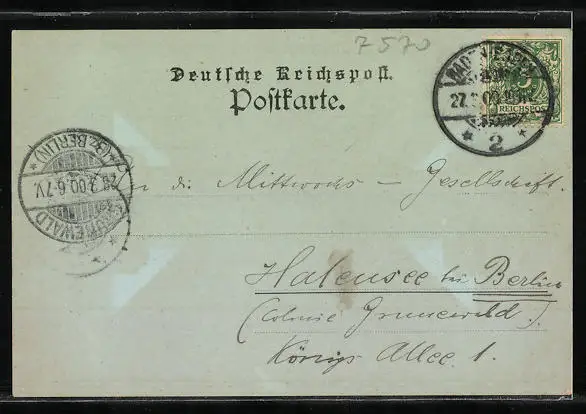 7570
Deutsche Reichspost.
Postkarte.
BADEN-BADEN
27.2.00
* 2 *
5
REICHSPOST
GRUNEWALD
(BZ. BERLIN)
28.2.00.6-7V.
An die Mittwochs-Gesellschaft.
Halensee bei Berlin
(Colonie Grunewald).
Königs Allee 1.